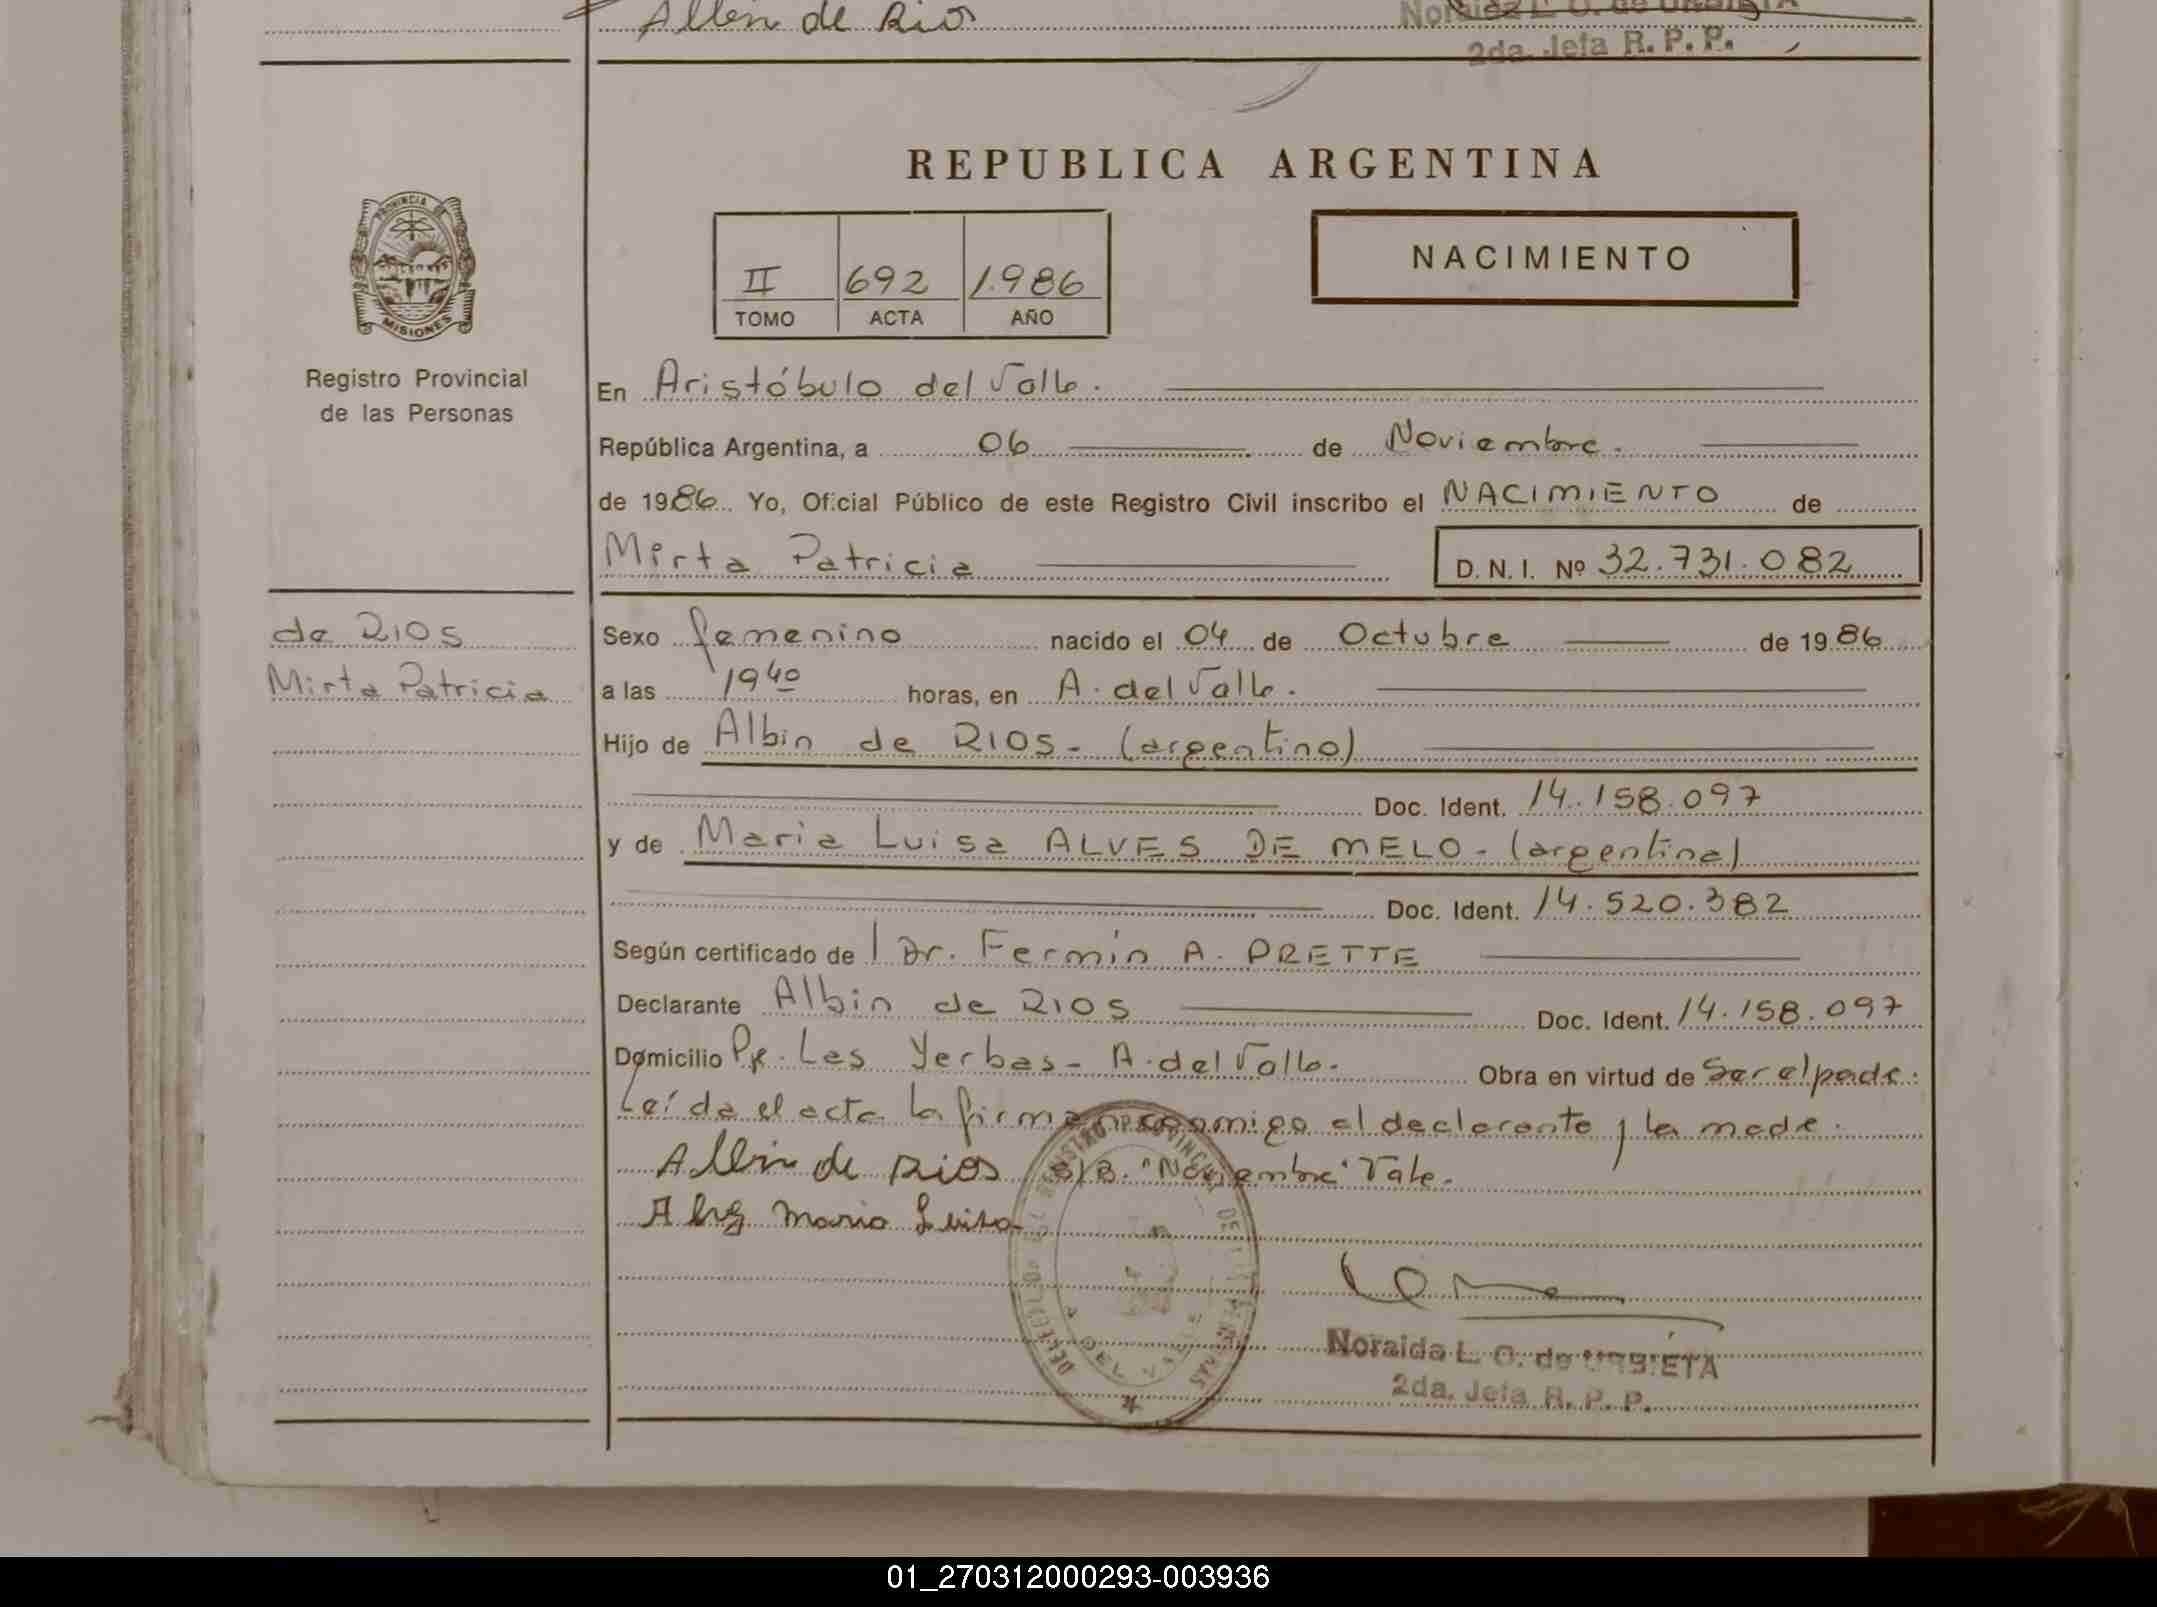 Albin de Rios
Noraida L. O. de URBIETA
2da. Jefa R. P. P.
PROVINCIA DE
MISIONES
Registro Provincial
de las Personas
REPUBLICA ARGENTINA
II 692 1.986
TOMO ACTA AÑO
NACIMIENTO
En Aristóbulo del Valle.
República Argentina, a 06 de Noviembre.
de 1986 Yo, Oficial Público de este Registro Civil inscribo el NACIMIENTO de
Mirta Patricia D. N. I. Nº 32.731.082
de RIOS
Mirta Patricia
Sexo femenino nacido el 04 de Octubre de 1986
a las 19 40 horas, en A. del Valle.
Hijo de Albin de RIOS - (argentino)
Doc. Ident. 14.158.097
y de Maria Luisa ALVES DE MELO - (argentina)
Doc. Ident. 14.520.382
Según certificado de l Dr. Fermín A. PRETTE
Declarante Albin de RIOS Doc. Ident. 14.158.097
Domicilio Pje. Las Yerbas - A. del Valle. Obra en virtud de Ser el padre.
Leída el acta la firman conmigo el declarante y la madre.
Albin de Rios S/B. "Noviembre" Vale.
Alvez Maria Luisa
DELEGACION DEL REGISTRO PROVINCIAL DE LAS PERSONAS
A. DEL VALLE
Noraida L. O. de URBIETA
2da. Jefa R. P. P.
01_270312000293-003936